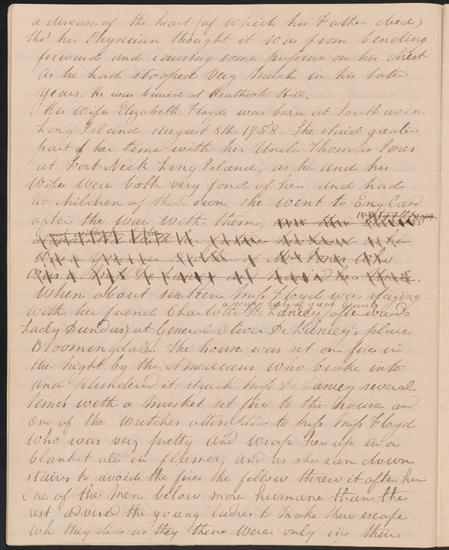 a disease of the heart (of which his Father died)
tho' his Physician thought it was from bending
forward and causing some pressure on his chest
as he had stooped very much in his later
years. He was buried at Heathcote Hill.
His wife Elizabeth Floyd was born at South aven
Long Island August 8th 1758. She lived greater
part of her time with her Uncle Thomas Jones
at Fort Neck Long Island, as he and his
wife were both very fond of her and had
no children of their own, she went to England
after the war with them,
When about sixteen Miss Floyd was staying
with her friend Charlotte De Lancey (afterwards
Lady Dundas) at General Oliver De Lancey's place
Bloomingdale. The house was set on fire in
the night by the Americans who broke into
and plundered it struck Miss De Lancey several
times with a musket set fire to the house and
one of the wretches to kiss Miss Floyd
who was very pretty and wrap her up in a
blanket all in flames, and as she run down
stairs to avoid the fire the fellow threw it after her
One of the men below more humane than the
rest advised the young ladies to make their escape
wh they did as they there were only in their